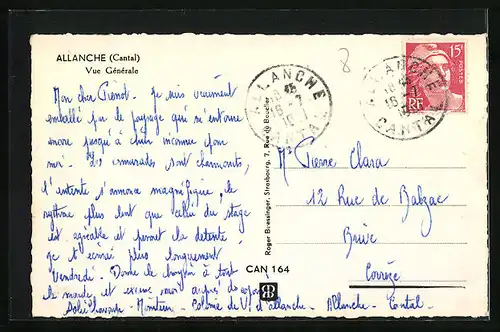 ALLANCHE (Cantal)
Vue Générale
Mon cher Pierrot. Je suis vraiment
emballé par le paysage qui
encore jusqu'à chien inconnu pour
moi. Les camarades sont charmants,
l'entente s'annonce magnifique, le
rythme plus lent que celui du stage
est agréable et permet la détente.
Je t'écrirai plus longuement
Vendredi. Donne le bonjour à tout
le monde et excuse moi auprès de
- Colonie de V. d'allanche - Allanche - Cantal -
CAN 164
Roger Brussinger, Strasbourg, 7, Rue du Bouclier
8
ALLANCHE
CANTAL
ALLANCHE
CANTAL
15F
POSTES
RF
Mr Pierre Clara
12 Rue de Balzac
Brive
Corrèze